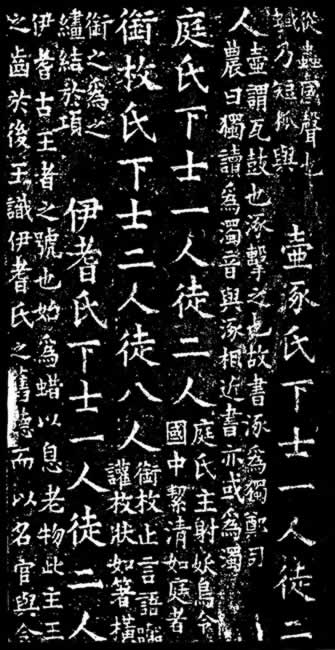 從蟲國聲也
蜮乃短狐與
壺涿氏下士一人徒二
人
壺謂瓦鼓也涿擊之也故書涿為獨鄭司
農曰獨讀為濁音與涿相近書亦或為濁
庭氏下士一人徒二人
庭氏主射妖鳥令
國中絜清如庭者
銜枚氏下士二人徒八人
銜枚止言語囂
讙枚狀如箸橫
銜之為之
繣結於項
伊耆氏下士一人徒二人
伊耆古王者之號也始為蜡以息老物此主王
之齒於後王識伊耆氏之舊德而以名官與今